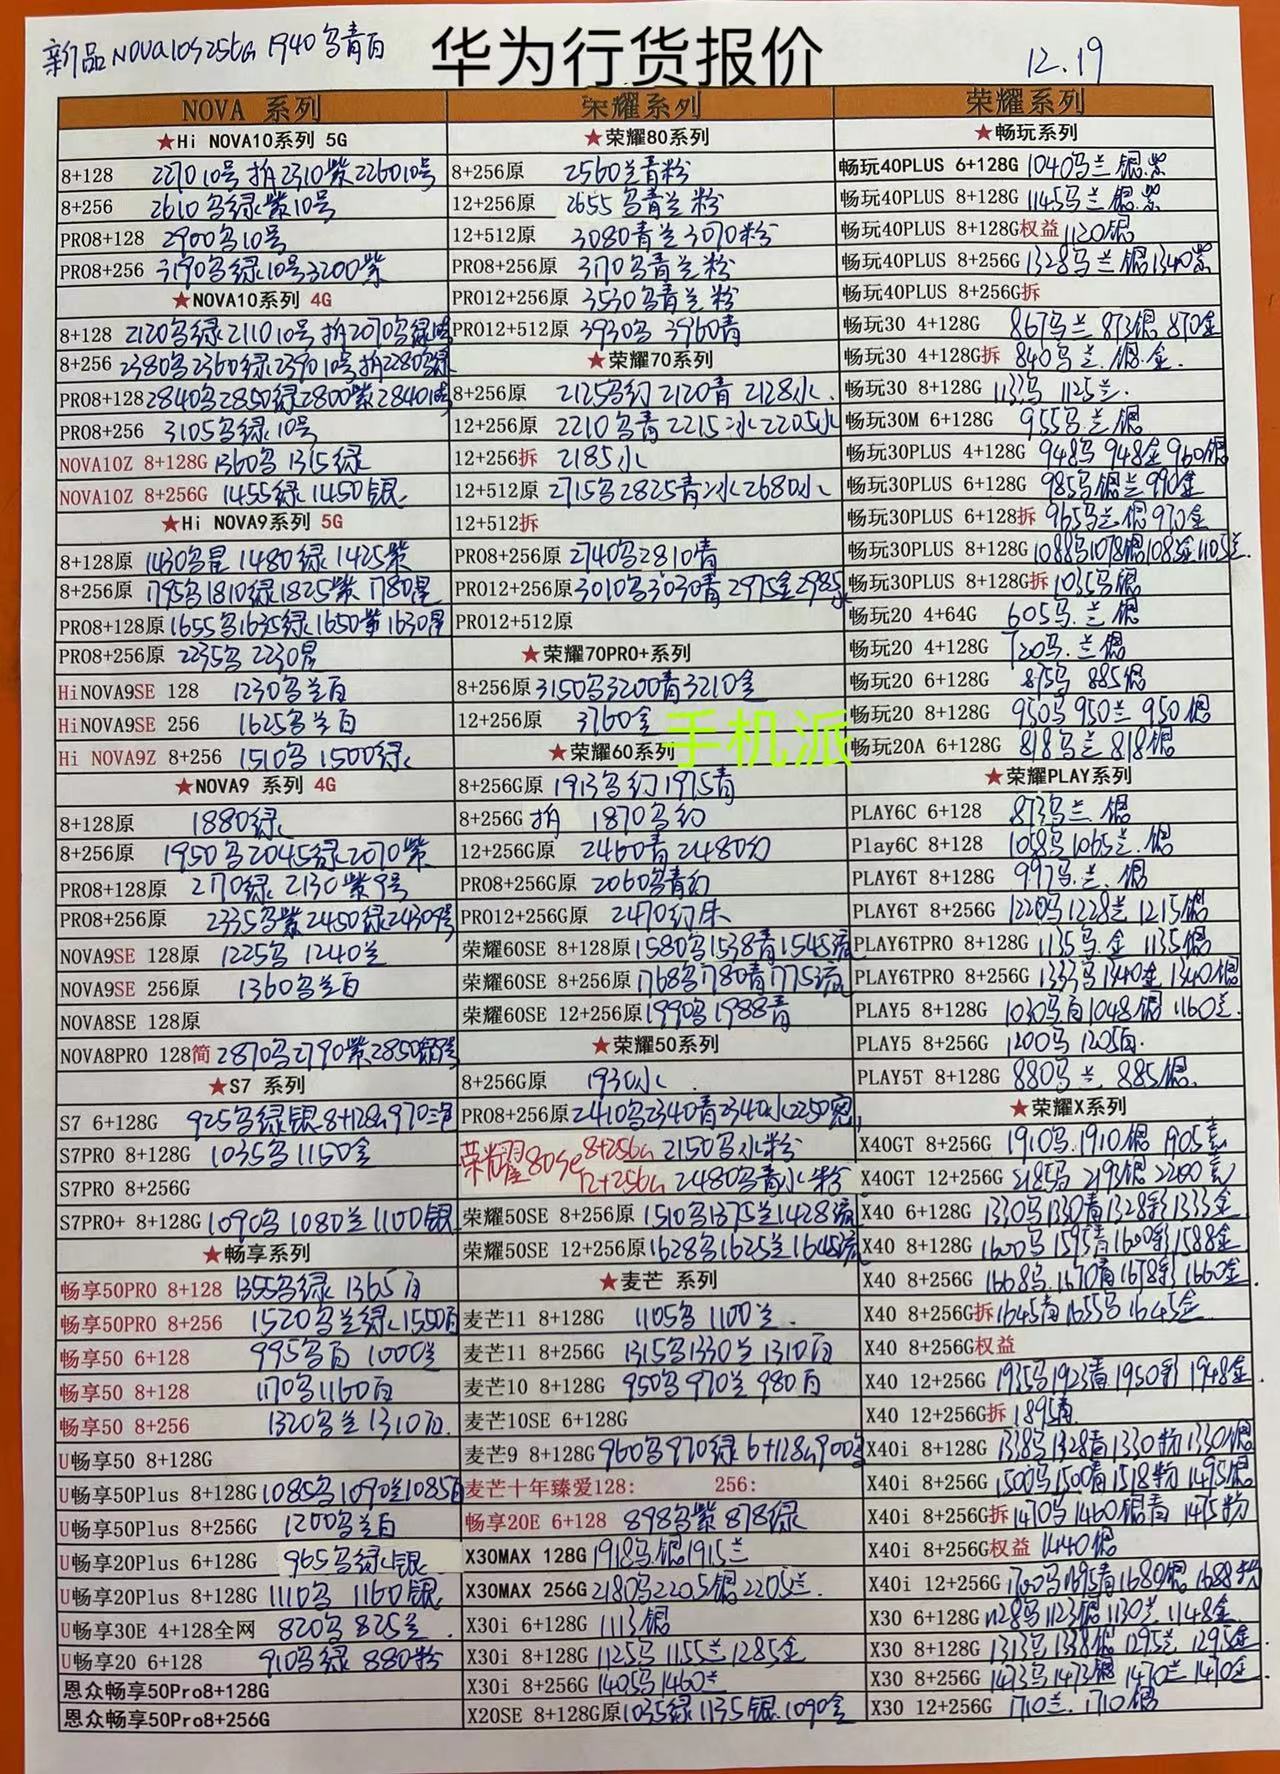 新品NOVA10S 256G 1940乌青白
华为行货报价
12.19
NOVA 系列
★Hi NOVA10系列 5G
8+128 2270 10号 拍2310紫2260 10号
8+256 2610乌绿紫10号
PRO8+128 2900乌10号
PRO8+256 3190乌绿10号3200紫
★NOVA10系列 4G
8+128 2120乌绿2110 10号 拍2070乌绿
8+256 2380乌2360绿2390 10号拍2280乌绿
PRO8+128 2840乌2850绿2800紫2840
PRO8+256 3105乌绿10号
NOVA10Z 8+128G 1360乌 1315绿
NOVA10Z 8+256G 1455绿 1450银
★Hi NOVA9系列 5G
8+128原 1430乌星 1480绿 1425紫
8+256原 1795乌1810绿1825紫 1780星
PRO8+128原 1655乌1635绿1650紫1630星
PRO8+256原 2235乌 2230星
HiNOVA9SE 128 1230乌兰白
HiNOVA9SE 256 1625乌兰白
Hi NOVA9Z 8+256 1510乌 1500绿
★NOVA9 系列 4G
8+128原 1880绿
8+256原 1950乌2045绿2070紫
PRO8+128原 2170绿 2130紫9号
PRO8+256原 2335乌紫2450绿2430 9号
NOVA9SE 128原 1225乌 1240兰
NOVA9SE 256原 1360乌兰白
NOVA8SE 128原
NOVA8PRO 128简 2870乌2790紫2850
★S7 系列
S7 6+128G 925乌绿银8+128G 970
S7PRO 8+128G 1035乌1150金
S7PRO 8+256G
S7PRO+ 8+128G 1090乌1080兰1100银
★畅享系列
畅享50PRO 8+128 1355乌绿 1365白
畅享50PRO 8+256 1520乌兰绿1550白
畅享50 6+128 995乌白 1000兰
畅享50 8+128 1170乌1160白
畅享50 8+256 1320乌兰1310白
U畅享50 8+128G
U畅享50Plus 8+128G 1085乌1090兰1085白
U畅享50Plus 8+256G 1200乌兰白
U畅享20Plus 6+128G 965乌绿银
U畅享20Plus 8+128G 1110乌 1160银
U畅享30E 4+128全网 820乌825兰
U畅享20 6+128 910乌绿880粉
恩众畅享50Pro8+128G
恩众畅享50Pro8+256G
荣耀系列
★荣耀80系列
8+256原 2560兰青粉
12+256原 2655乌青兰粉
12+512原 3080青兰3070粉
PRO8+256原 3170乌青兰粉
PRO12+256原 3530乌青兰粉
PRO12+512原 3930乌 3960青
★荣耀70系列
8+256原 2125乌幻 2120青 2128水
12+256原 2210乌青2215冰2205水
12+256拆 2185水
12+512原 2715乌2825青冰2680水
12+512拆
PRO8+256原 2740乌2810青
PRO12+256原 3010乌3030青2975金2985
PRO12+512原
★荣耀70PRO+系列
8+256原 3150乌3200青3210金
12+256原 3760金
手机派
★荣耀60系列
8+256G原 1913乌幻1975青
8+256G 拍 1870乌幻
12+256G原 2460青2480幻
PRO8+256G原 2060乌青幻
PRO12+256G原 2470幻朱
荣耀60SE 8+128原 1580乌1538青1545流
荣耀60SE 8+256原 1768乌1780青1775流
荣耀60SE 12+256原 1990乌1988青
★荣耀50系列
8+256G原 1930水
PRO8+256原 2410乌2340青2340水2250
荣耀80SE 8+256G 2150乌水粉
12+256G 2480乌青水粉
荣耀50SE 8+256原 1510乌1375兰1428流
荣耀50SE 12+256原 1628乌1625兰1645流
★麦芒 系列
麦芒11 8+128G 1105乌 1100兰
麦芒11 8+256G 1315乌1330兰1310白
麦芒10 8+128G 950乌970兰980白
麦芒10SE 6+128G
麦芒9 8+128G 960乌970绿 6+128G 900乌
麦芒十年臻爱128: 256:
畅享20E 6+128 898乌紫878绿
X30MAX 128G 1918乌银1915兰
X30MAX 256G 2180乌2205银2205兰
X30i 6+128G 1113银
X30i 8+128G 1125乌 1155兰1285金
X30i 8+256G 1405乌1460兰
X20SE 8+128G原 1035绿1135银1090金
荣耀系列
★畅玩系列
畅玩40PLUS 6+128G 1040乌兰银紫
畅玩40PLUS 8+128G 1145乌兰银紫
畅玩40PLUS 8+128G权益 1120银
畅玩40PLUS 8+256G 1328乌兰银1340紫
畅玩40PLUS 8+256G拆
畅玩30 4+128G 867乌兰 873银 870金
畅玩30 4+128G拆 840乌兰银金
畅玩30 8+128G 1133乌 1125兰
畅玩30M 6+128G 955乌兰银
畅玩30PLUS 4+128G 948乌 948金 960银
畅玩30PLUS 6+128G 985乌银兰990金
畅玩30PLUS 6+128拆 965乌兰银970金
畅玩30PLUS 8+128G 1088乌1078银1085金1105兰
畅玩30PLUS 8+128G拆 1035乌银
畅玩20 4+64G 605乌兰银
畅玩20 4+128G 720乌兰银
畅玩20 6+128G 875乌 885银
畅玩20 8+128G 950乌950兰950银
畅玩20A 6+128G 818乌兰818银
★荣耀PLAY系列
PLAY6C 6+128 873乌兰银
Play6C 8+128 1058乌1065兰银
PLAY6T 8+128G 992乌兰银
PLAY6T 8+256G 1220乌1228兰1215银
PLAY6TPRO 8+128G 1135乌金 1135银
PLAY6TPRO 8+256G 1333乌1340金1340银
PLAY5 8+128G 1030乌白1048银1160兰
PLAY5 8+256G 1200乌 1205白
PLAY5T 8+128G 880乌兰 885银
★荣耀X系列
X40GT 8+256G 1910乌1910银1905
X40GT 12+256G 2185乌2193银2200
X40 6+128G 1330乌1330青1328彩1335金
X40 8+128G 1600乌1595青1600彩1588金
X40 8+256G 1668乌1670青1678彩1660金
X40 8+256G拆 1645青1655乌1645金
X40 8+256G权益
X40 12+256G 1935乌1923青1950彩1948金
X40 12+256G拆 1895青
X40i 8+128G 1338乌1328青1330粉1330银
X40i 8+256G 1500乌1500青1518粉1495银
X40i 8+256G拆 1470乌1460银青1475粉
X40i 8+256G权益 1440银
X40i 12+256G 1700乌1695青1680银1688粉
X30 6+128G 1128乌1123银1130兰1148金
X30 8+128G 1313乌1338银1295兰1295金
X30 8+256G 1473乌1473银1470兰1470金
X30 12+256G 1710兰 1710银